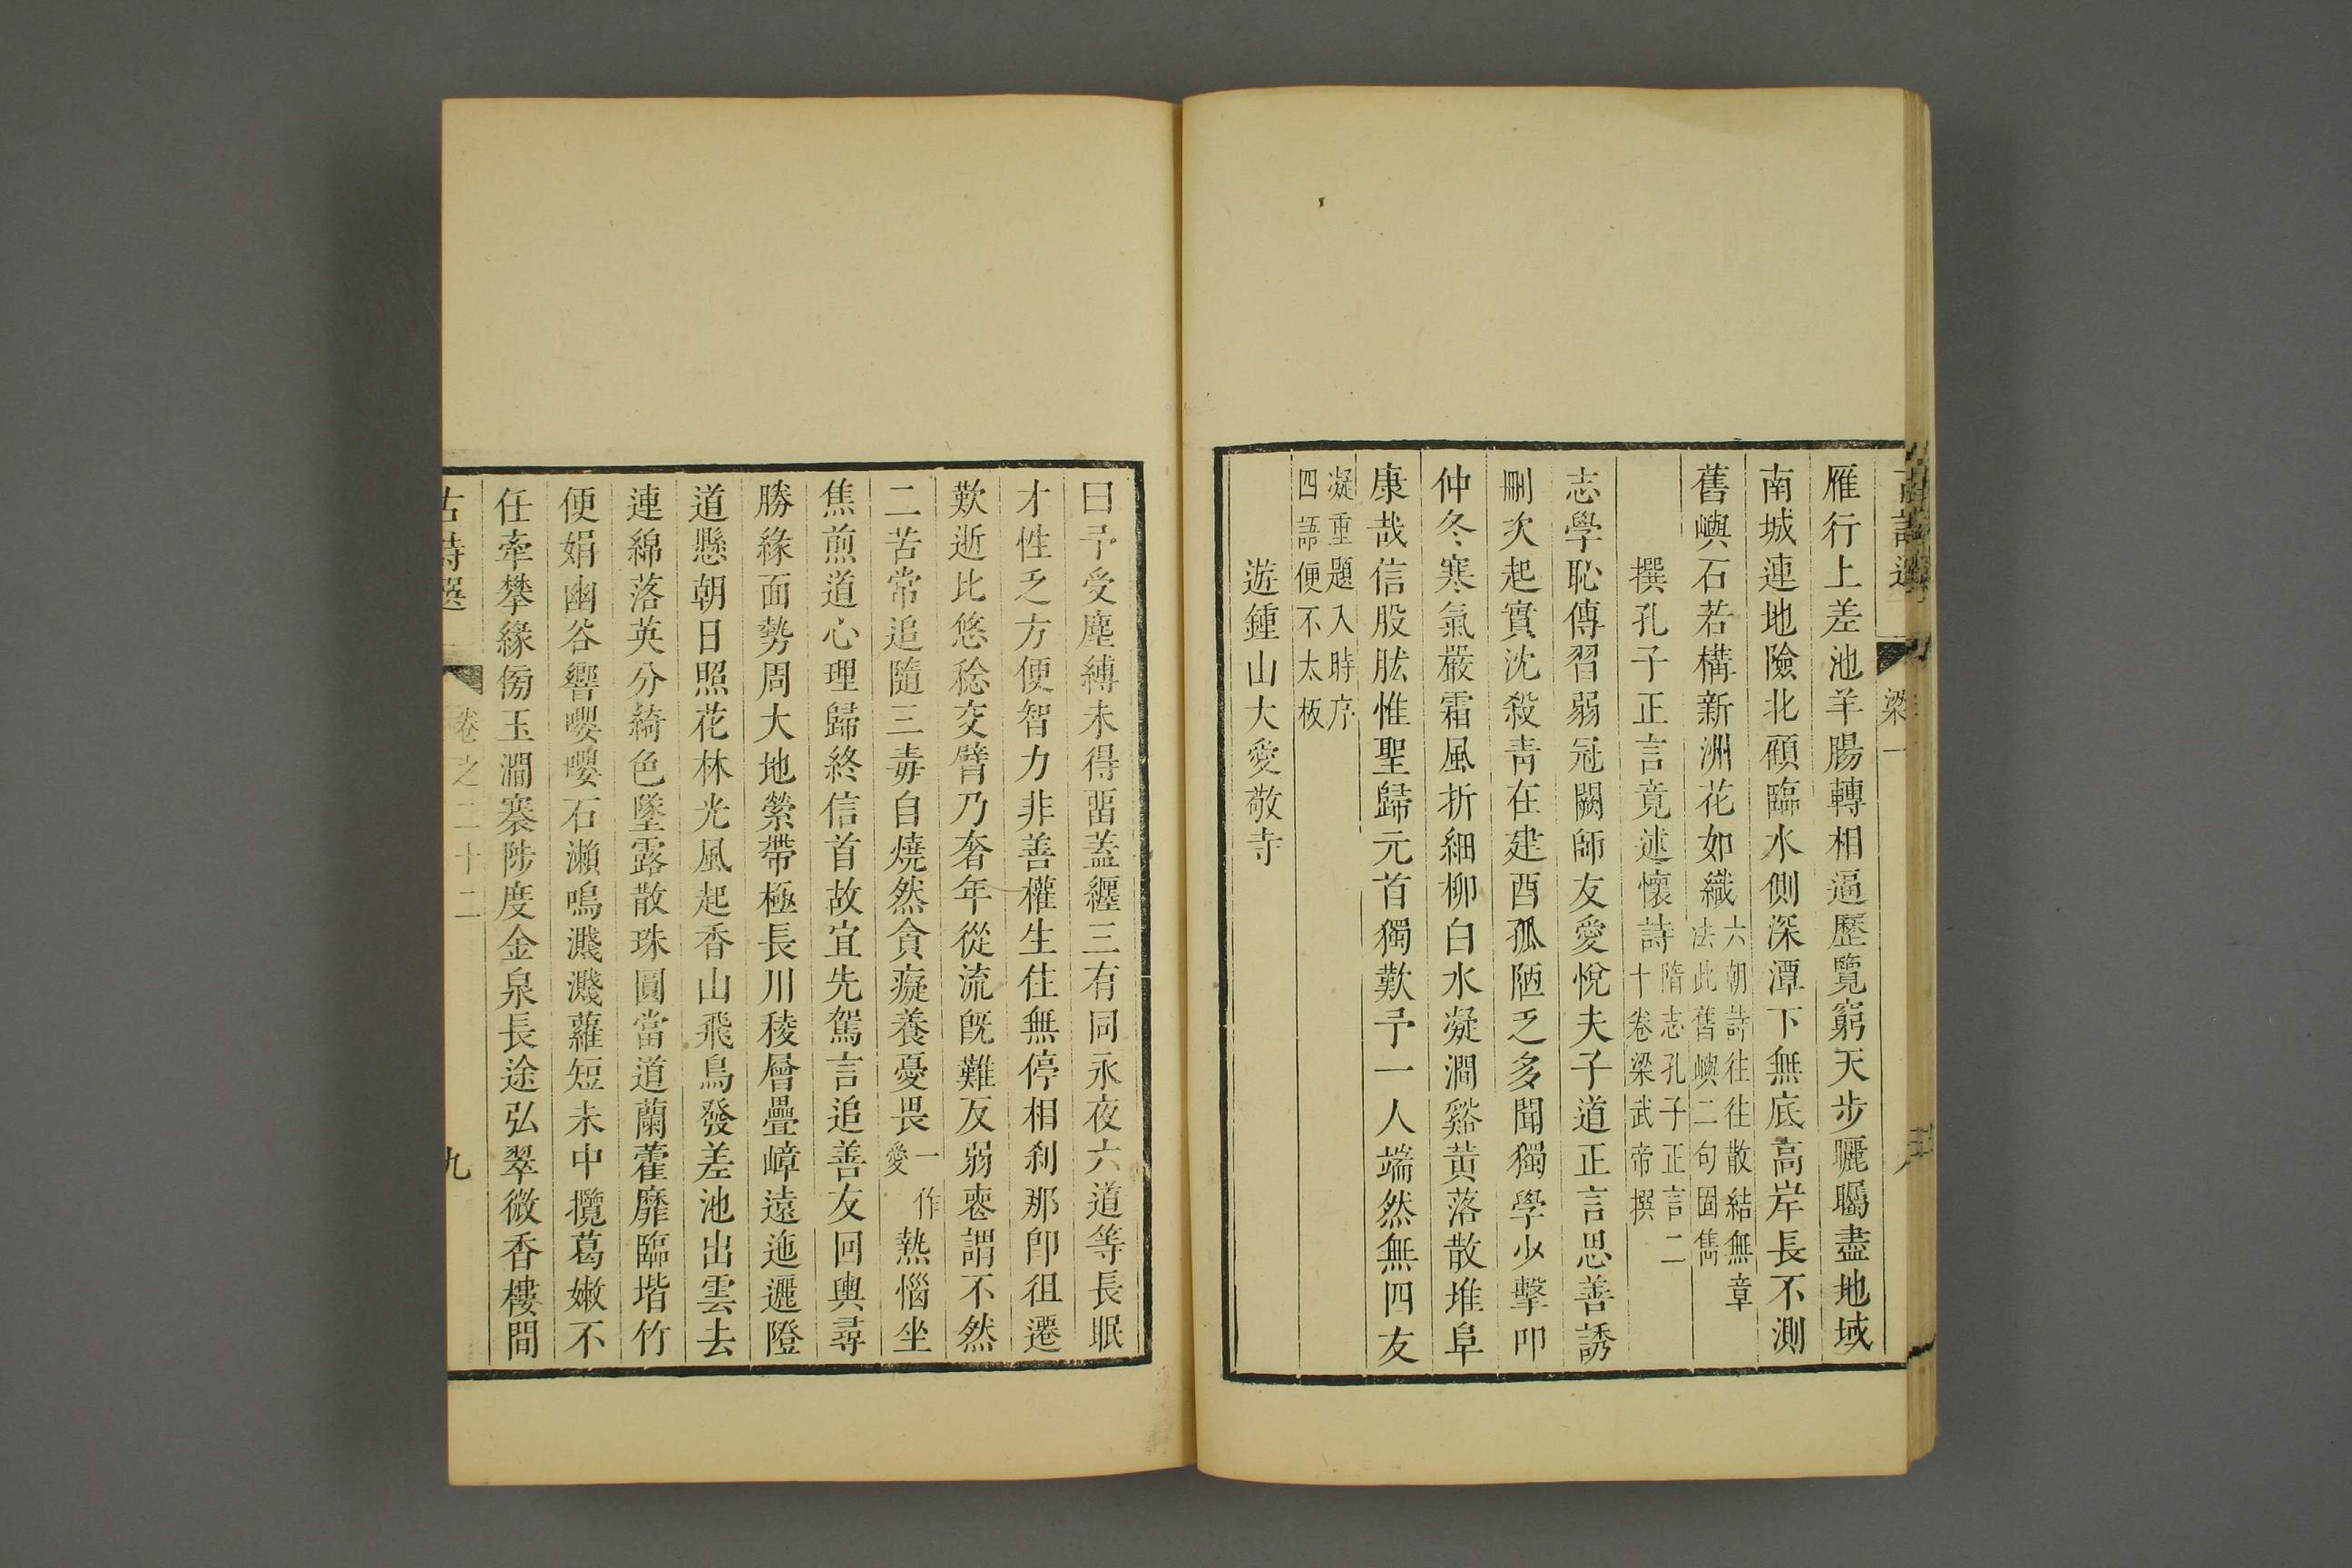 古詩選
梁一
雁行上差池羊腸轉相逼歷覽窮天步矖矚盡地域
南城連地險北顧臨水側深潭下無底高岸長不測
舊嶼石若構新洲花如織六朝詩往往散結無章
法此舊嶼二句固雋
撰孔子正言竟述懷詩隋志孔子正言二
十卷梁武帝撰
志學恥傳習弱冠闕師友愛悅夫子道正言思善誘
刪次起實沈殺靑在建酉孤陋乏多聞獨學少擊叩
仲冬寒氣嚴霜風折細柳白水凝澗谿黃落散堆阜
康哉信股肱惟聖歸元首獨歎予一人端然無四友
凝重題入時序
四語便不太板
遊鍾山大愛敬寺
曰予受塵縛未得畱蓋纏三有同永夜六道等長眠
才性乏方便智力非善權生住無停相刹那卽徂遷
歎逝比悠稔交臂乃奢年從流旣難反弱喪謂不然
二苦常追隨三毒自燒然貪癡養憂畏一作
愛熱惱坐
焦煎道心理歸終信首故宜先駕言追善友回輿尋
勝緣面勢周大地縈帶極長川稜層疊嶂遠迤邐隥
道懸朝日照花林光風起香山飛鳥發差池出雲去
連綿落英分綺色墜露散珠圓當道蘭藿靡臨堦竹
便娟幽谷響嚶嚶石瀨鳴濺濺蘿短未中攬葛嫩不
任牽攀緣傍玉澗褰陟度金泉長途弘翠微香樓間
古詩選
卷之二十二
九